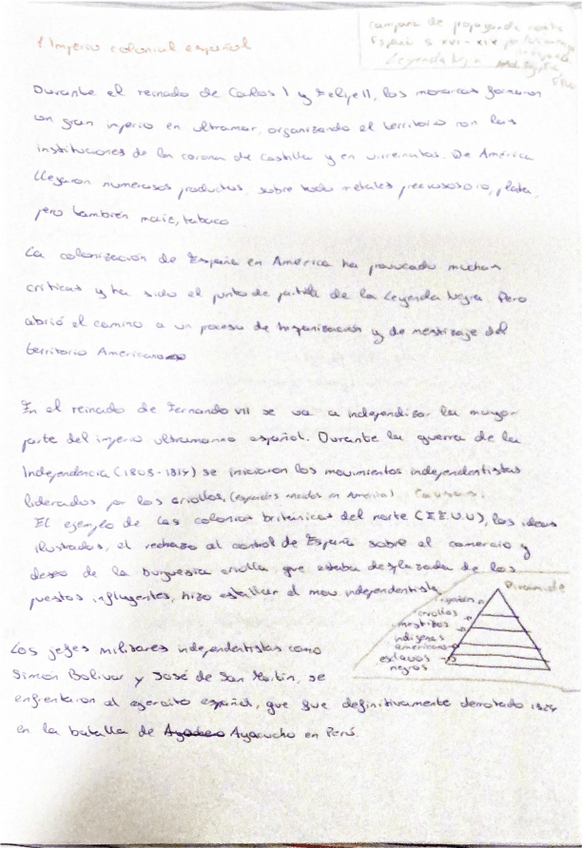 1. Imperio colonial español
campaña de propaganda contra
España s XVI-XIX
Leyenda Negra
Durante el reinado de Carlos I y Felipe II, los monarcas formaron
un gran imperio en ultramar, organizando el territorio con las
instituciones de la corona de Castilla y en virreinatos. De América
llegaron numerosos productos, sobre todo metales preciosos oro, plata,
pero también maíz, tabaco
La colonización de España en América ha provocado muchas
críticas y ha sido el punto de partida de la Leyenda Negra. Pero
abrió el camino a un proceso de organización y de mestizaje del
territorio Americano
En el reinado de Fernando VII se va a independizar la mayor
parte del imperio ultramarino español. Durante la guerra de la
Independencia (1808-1814) se iniciaron los movimientos independentistas
liderados por los criollos, (españoles nacidos en América). Causas.
El ejemplo de las colonias británicas del norte (E.E.U.U), las ideas
ilustradas, el rechazo al control de España sobre el comercio y
deseo de la burguesía criolla, que estaba desplazada de los
puestos influyentes, hizo estallar el mov. independentista
Pirámide
criollos
mestizos
indígenas
americanos
esclavos
negros
Los jefes militares independentistas como
Simón Bolívar y José de San Martín, se
enfrentaron al ejército español, que fue definitivamente derrotado 1824
en la batalla de Ayacucho en Perú.